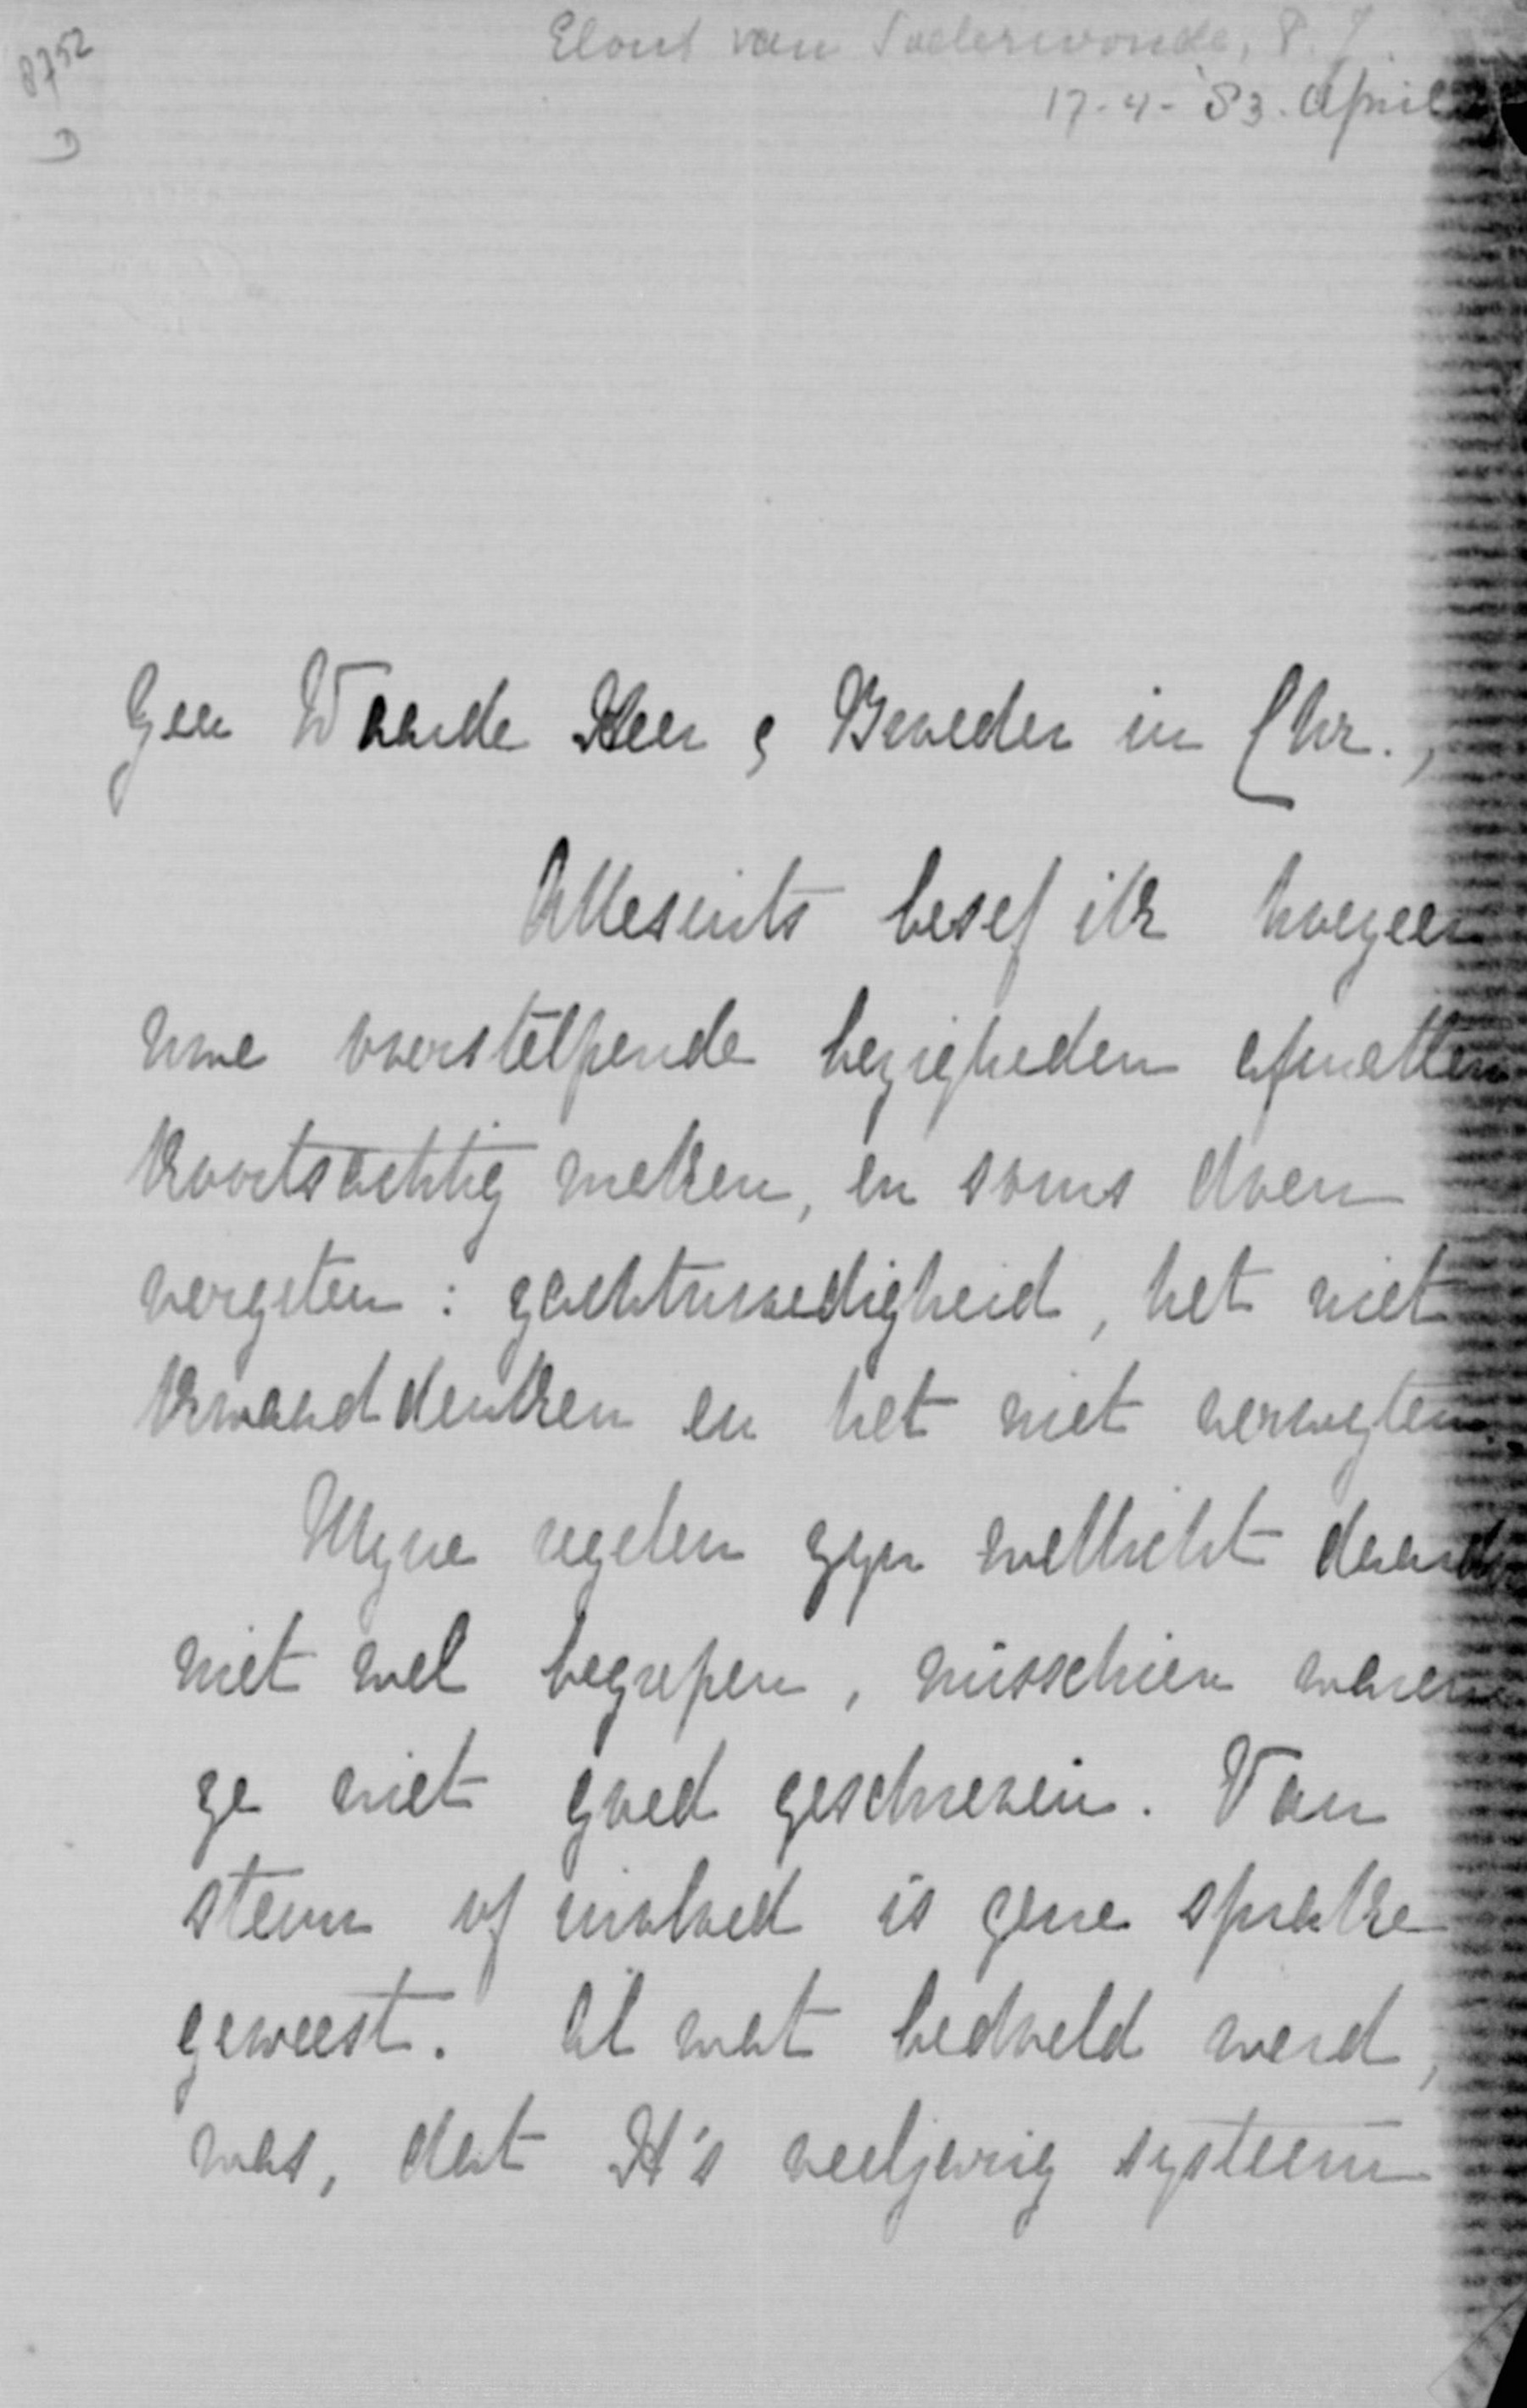 8752
D
Elout van Soeterwoude, P. J.
17-4-'83. April
Zeer Waarde Heer & Broeder in Chr.,
Alleszints besef ik hoezeer
uwe overstelpende bezigheden afmatten
koortsachtig maken, en soms doen
vergeten: zachtmoedigheid, het niet
kwaad denken en het niet verwyten.
Myne regelen zyn wellicht daardoor
niet wel begrepen, misschien waren
ze niet goed geschreven. Van
steun of invloed is gene sprake
geweest. Al wat bedoeld werd,
was, dat H's veeljarig systeem